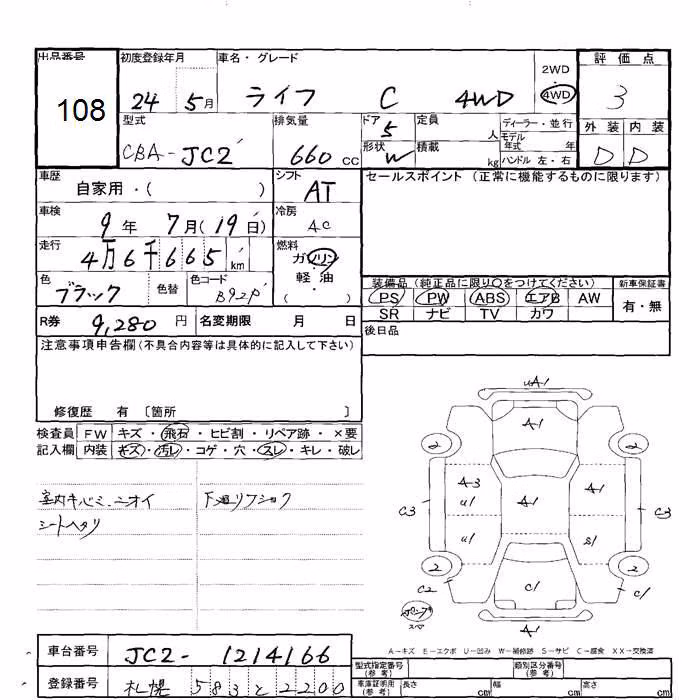 出品番号 初度登録年月 車名・グレード 評価点
108 24 5月 ライフ C 4WD 2WD 4WD 3
型式 排気量 ドア 定員 ディーラー・並行 外装 内装
CBA-JC2 660cc 5 人 モデル年式 年 D D
形状 W 積載 kg ハンドル 左・右
車歴 シフト セールスポイント (正常に機能するものに限ります)
自家用・( ) AT
車検 冷房
9年 7月(19日) AC
走行 燃料
4万6千665km ガソリン・軽油・( )
色 色替 色コード 装備品(純正品に限り○をつけてください) 新車保証書
ブラック B92P PS PW ABS エアB AW 有・無
SR ナビ TV カワ
R券 9,280円 名変期限 月 日 後日品
注意事項申告欄(不具合内容等は具体的に記入して下さい)
修復歴 有 〔箇所 〕
検査員 FW キズ・飛石・ヒビ割・リペア跡・×要
記入欄 内装 キズ・汚レ・コゲ・穴・スレ・キレ・破レ
室内キバミ.ニオイ 下廻リフショク
シートヘタリ
uA1
A1
2 2
A3 A1
C3 u1 A1 C3
u1 S1
2 2
C2 C1 C1
A1
A→キズ E→エクボ U→凹み W→補修跡 S→サビ C→腐食 XX→交換済
車台番号 JC2-1214166 型式指定番号(参考) 類別区分番号(参考)
登録番号 札幌 583 と 2200 車庫証明用(参考) 長さ cm 幅 cm 高さ cm